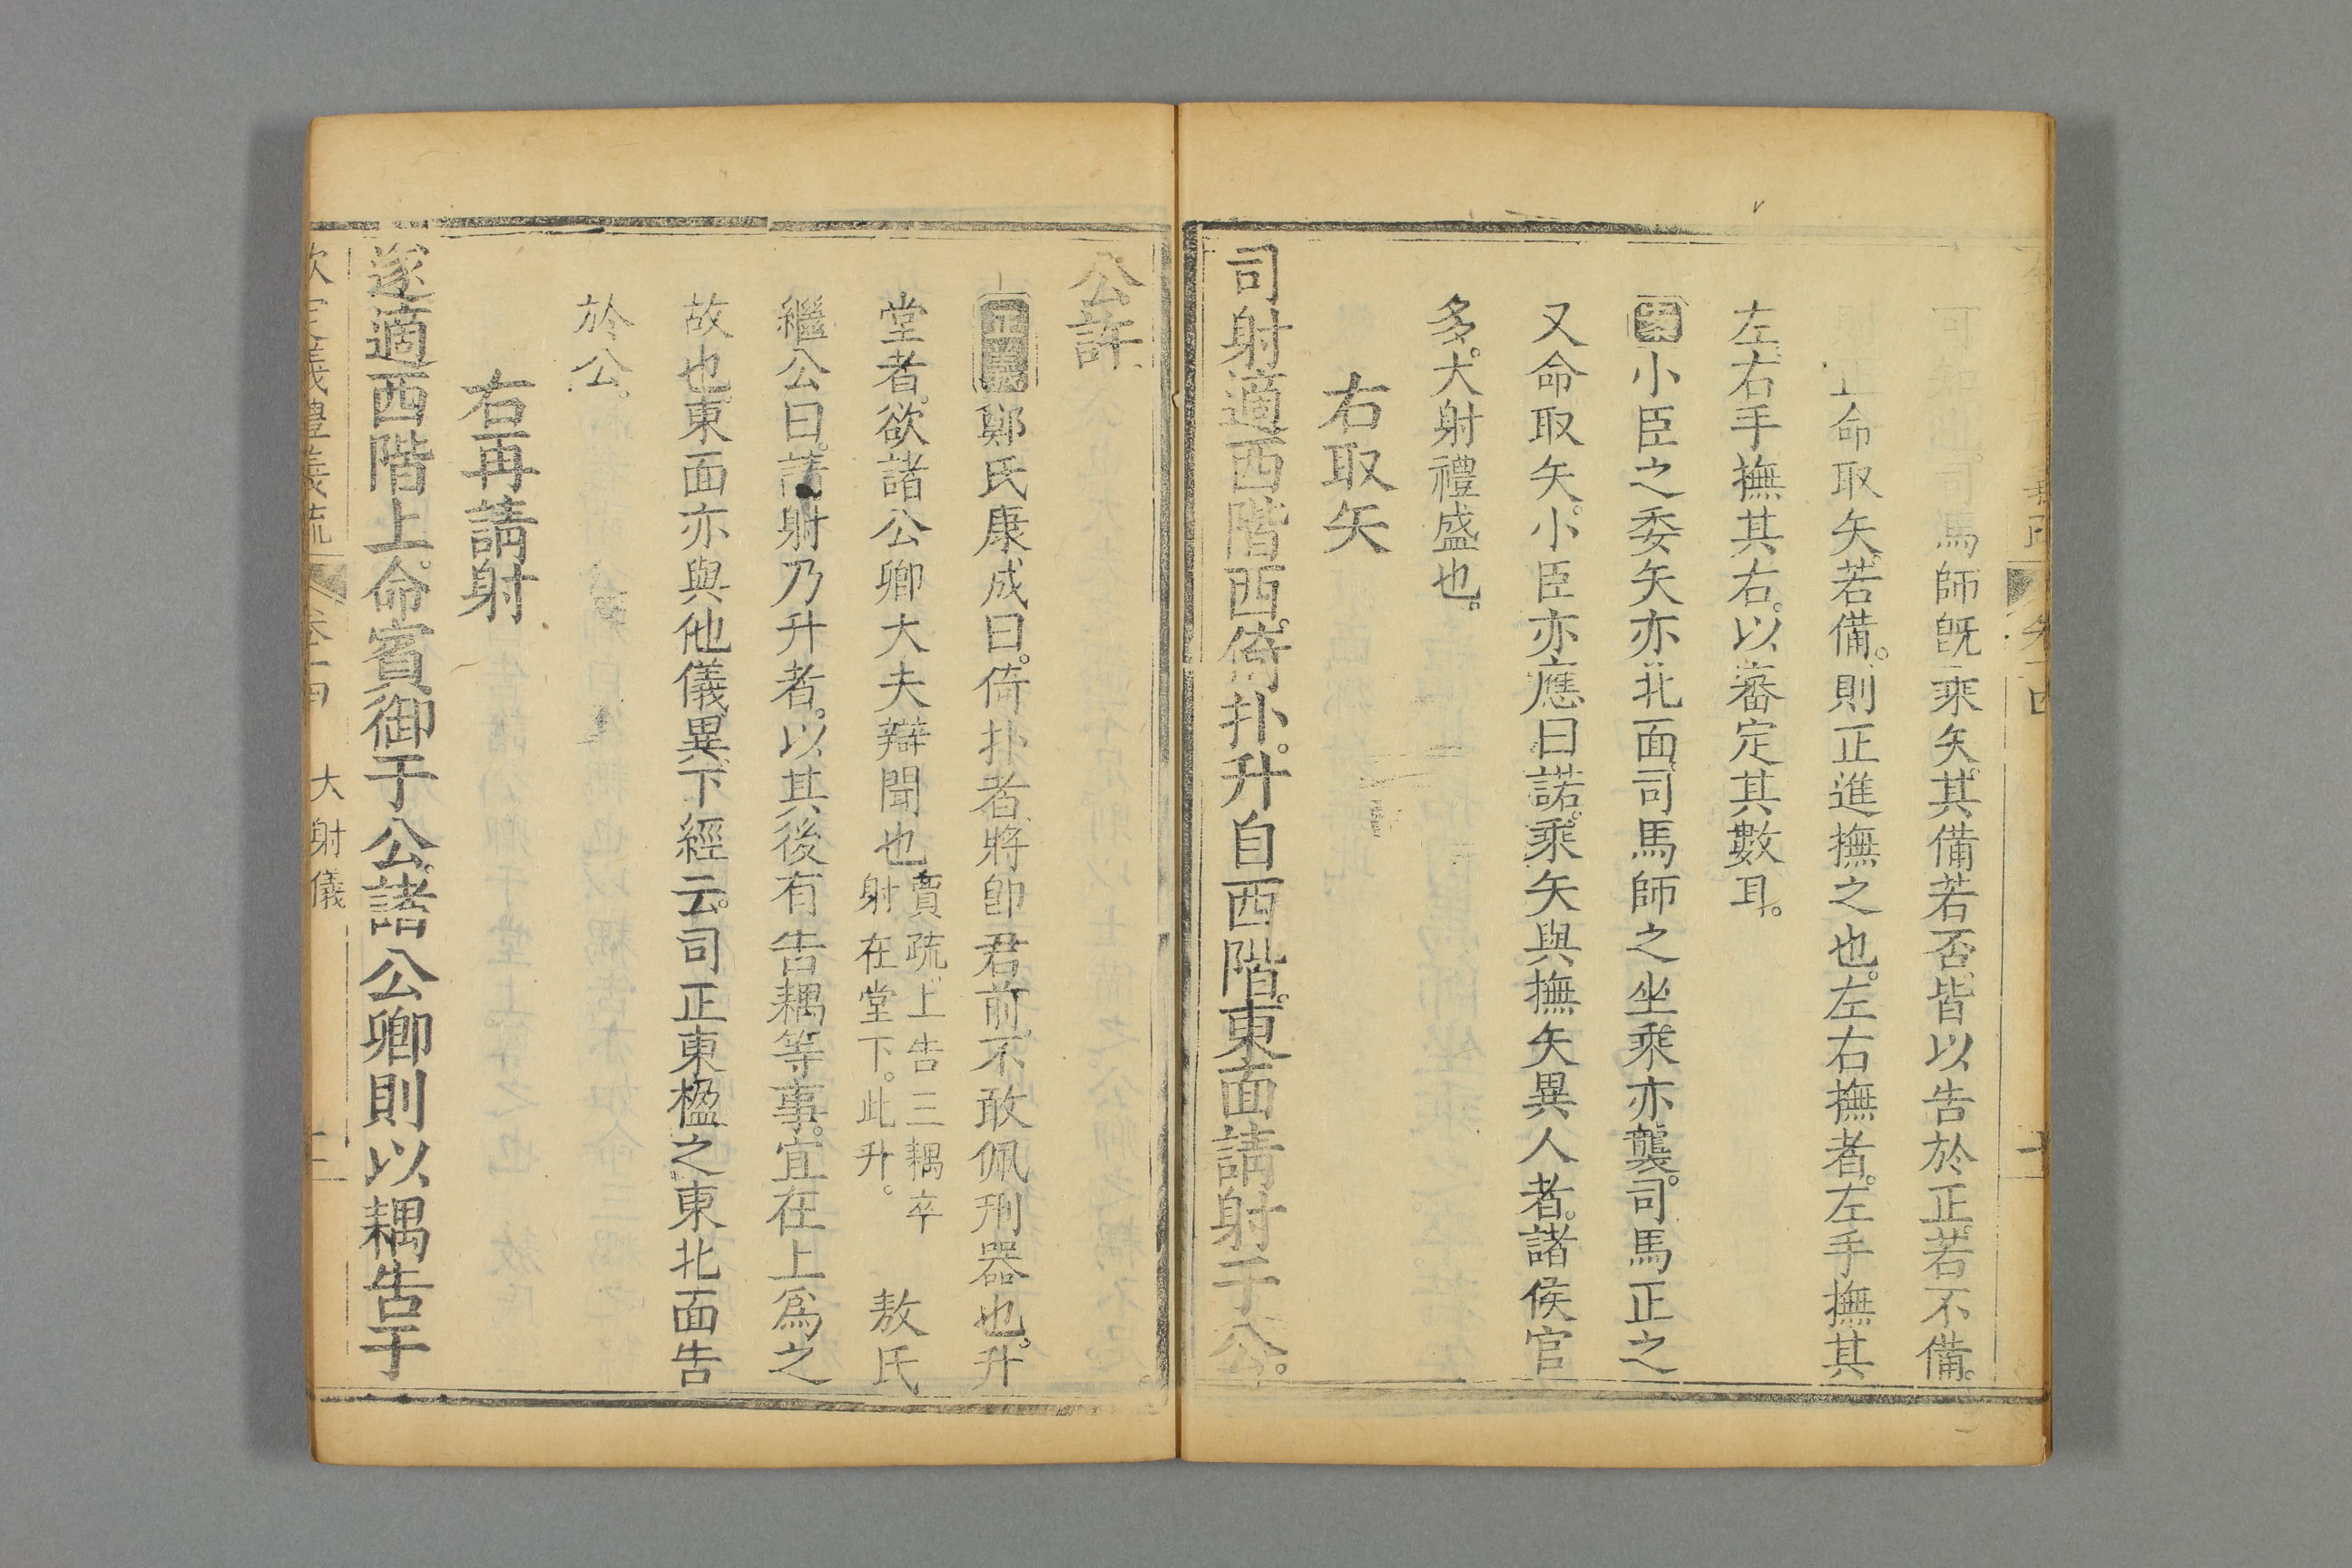 司馬師既乘矢其備若否皆以告於正若不備
命取矢若備則正進撫之也左右撫者左手撫其
左右手撫其右以審定其數耳
案小臣之委矢亦北面司馬師之坐乘亦襲司馬正之
又命取矢小臣亦應曰諾乘矢與撫矢異人者諸侯官
多大射禮盛也
右取矢
司射適西階西倚扑升自西階東面請射于公
公許
正義鄭氏康成曰倚扑者將卽君前不敢佩刑器也升
堂者欲諸公卿大夫辯聞也賈疏上告三耦卒射在堂下此升 敖氏
繼公曰請射乃升者以其後有告耦等事宜在上爲之
故也東面亦與他儀異下經云司正東楹之東北面告
於公
右再請射
遂適西階上命賓御于公諸公卿則以耦告于
欽定儀禮義疏 卷十四 大射儀